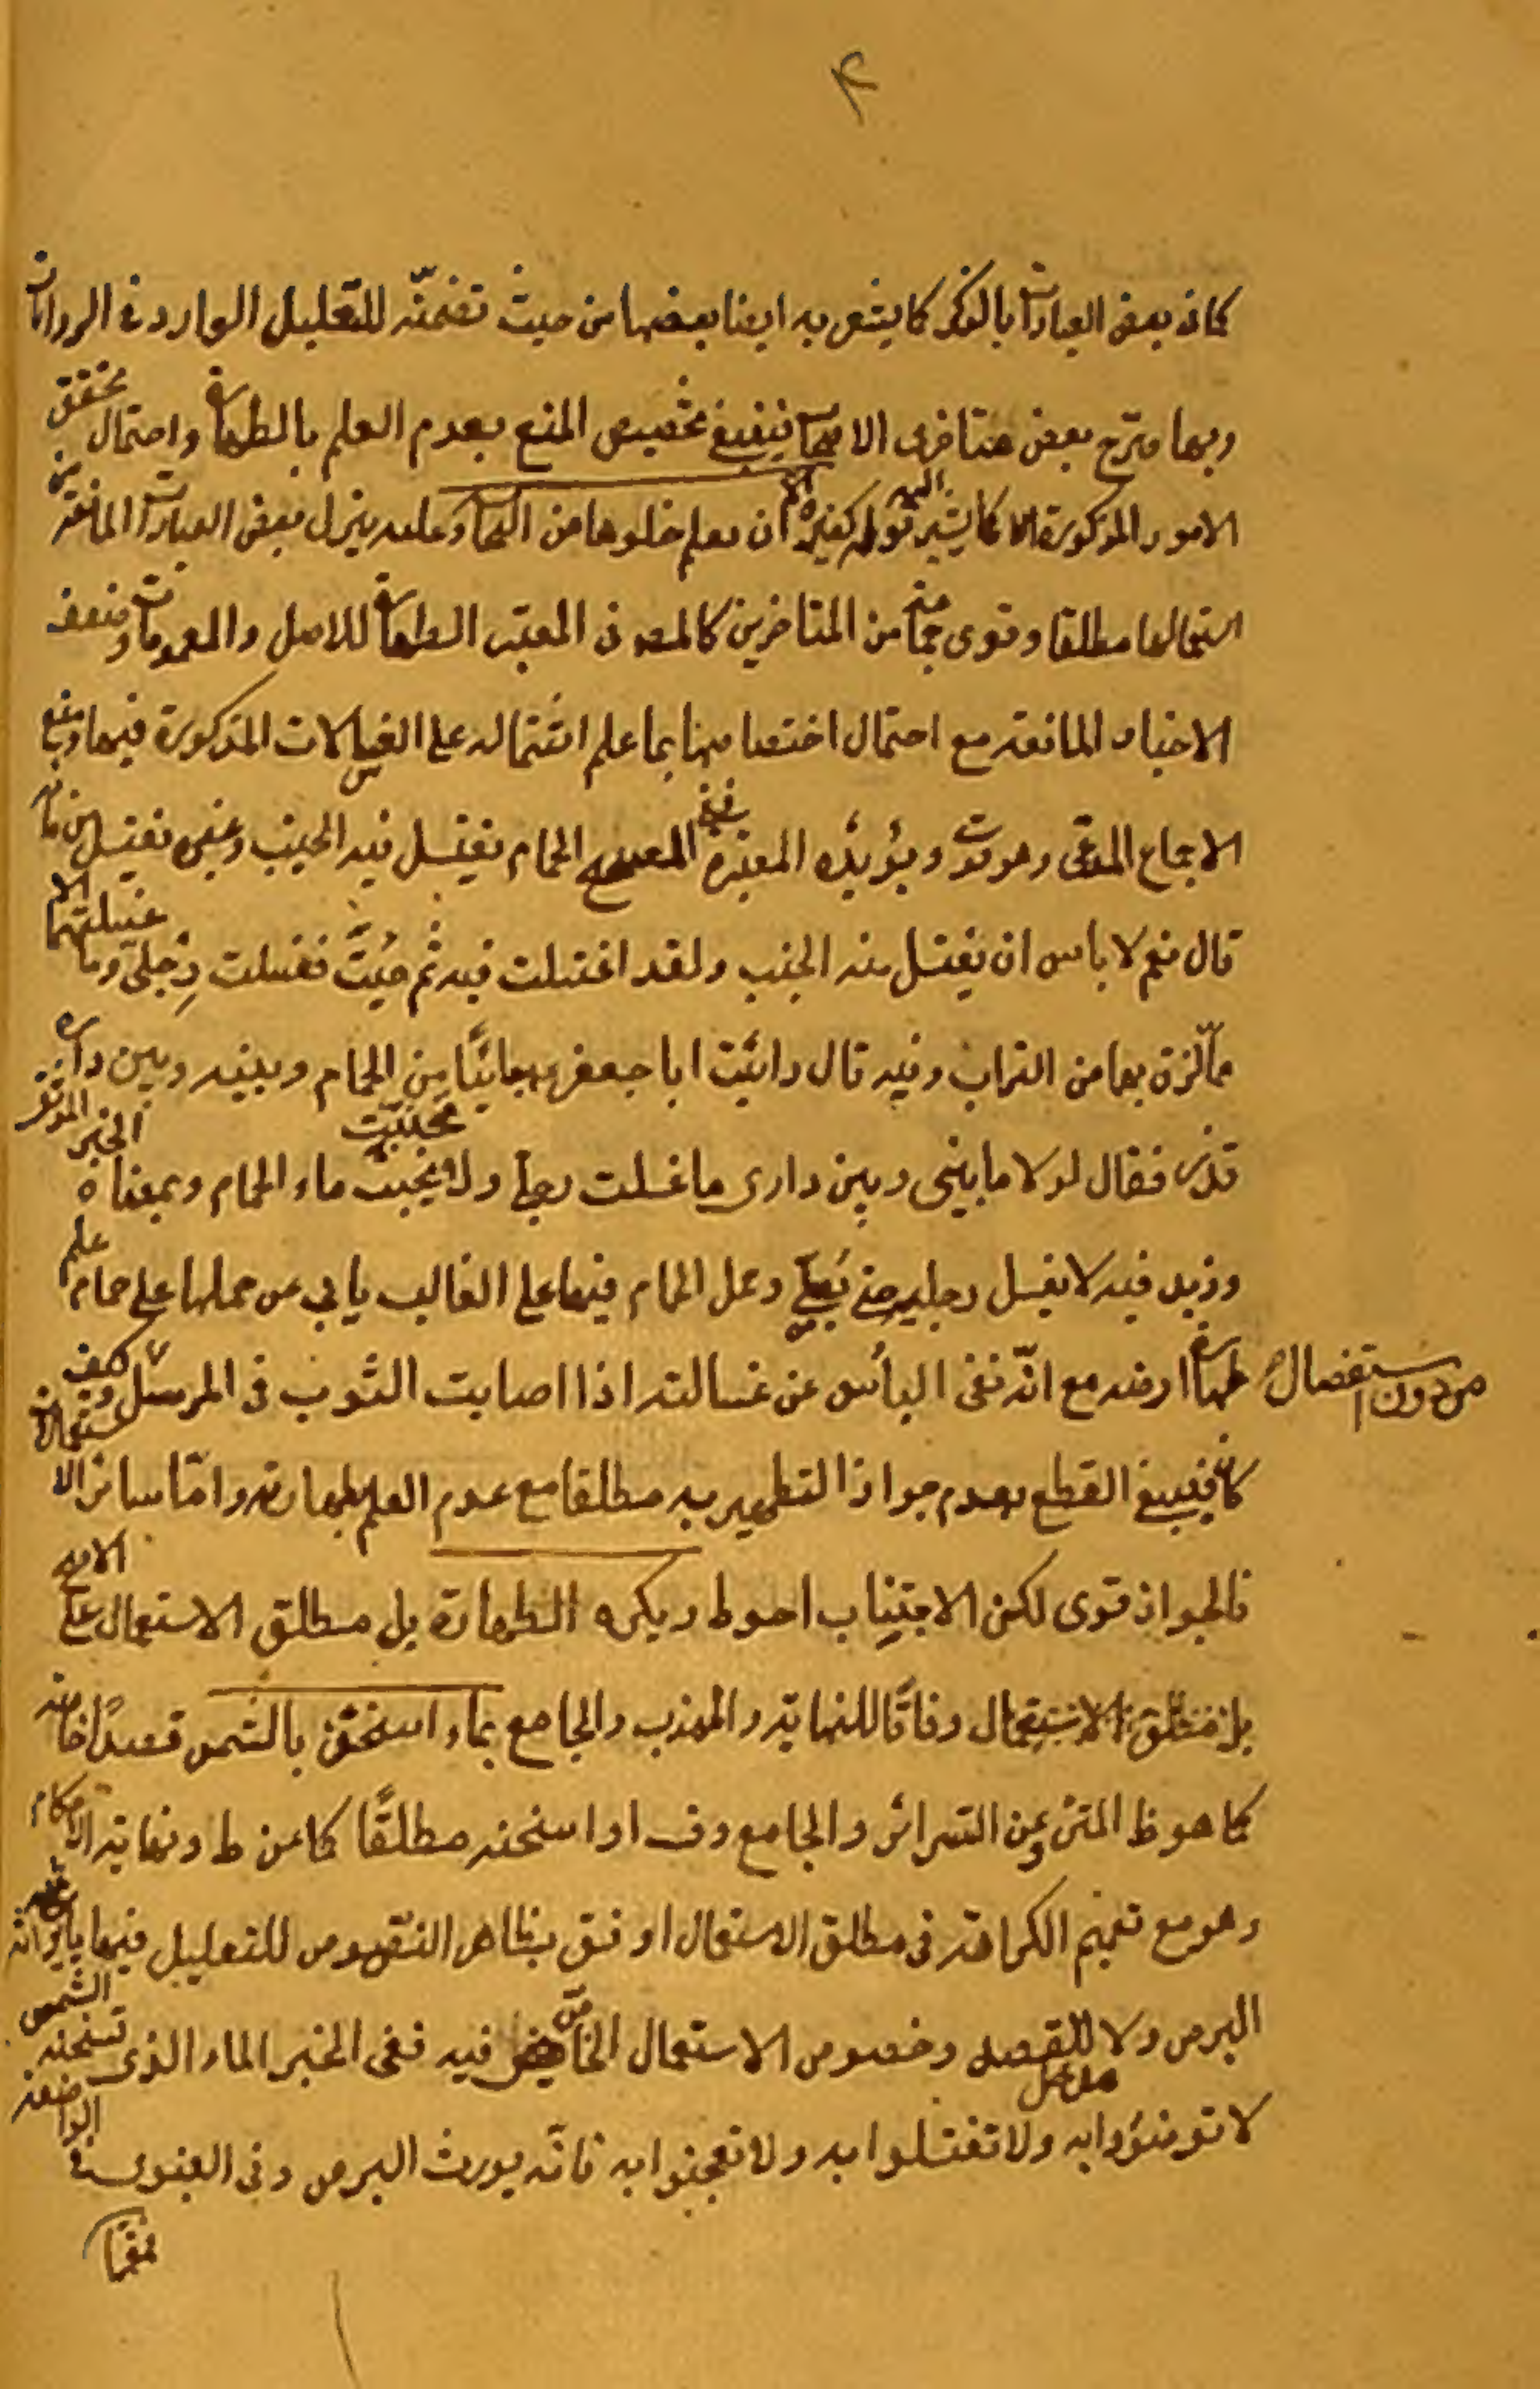 كما في بعض العبارات بالذكر كما يشعر به ايضا بعضها من حيث تضمنّه للتعليل الوارد في الروايات
وبها صرّح بعض متاخري الاصحاب فينبغي تخصيص المنع بعدم العلم بالطهارة واحتمال تحقق
الامور المذكورة كما يشير اليه قوله كغيره الا ان يعلم خلوها من النجاسة وعليه ينزل بعض العبارات المانعة من
استعمالها مطلقا وقوى جماعة من المتاخرين كالمصنف في المعتبر الطهارة للاصل والعمومات وضعف
الاخبار المانعة مع احتمال اختصاصها بما علم اشتماله على الغسالات المذكورة فيها ومنع
الاجماع المدعى وهو قوي ويؤيّده المعتبرة ففي الصحيح الحمام يغتسل فيه الجنب وغيره يغتسل من مائه
قال نعم لا باس ان يغتسل منه الجنب ولقد اغتسلت فيه ثم جئت فغسلت رجليّ وما غسلتهما الا
ممّا لزق بهما من التراب وفيه قال رايت ابا جعفر جائيًا من الحمام وبينه وبين داره
قذر فقال لولا ما بيني وبين داري ما غسلت رجلي ولا تجنبت ماء الحمام وبمعناه الخبر الموثق
وزيد فيه لا يغسل رجليه حتى يصلّي وحمل الحمام فيها على الغالب يابى عن حملها على حمام علم
طهارة ارضه مع انّه نفى البأس عن غسالته اذا اصابت الثوب في المرسل من دون استفصال وكيف
كان فينبغي القطع بعدم جواز التطهير به مطلقا مع عدم العلم بطهارته وامّا سائر الاستعمالات
فالجواز قوى لكن الاجتناب احوط ويكره الطهارة بل مطلق الاستعمال على
بل مطلق الاستعمال وفاقًا للنهاية والمهذب والجامع بماء اسخن بالشمس قصدًا خاصة
كما هو ظ المتن وعن السرائر والجامع وف او اسخنه مطلقًا كما عن ط ونهاية الاحكام
وهو مع تعميم الكراهة في مطلق الاستعمال اوفق بظاهر النصوص للتعليل فيها بايراثه
البرص ولا مدخل للقصد وخصوص الاستعمال الخاص فيه ففي الخبر الماء الذي تسخنه الشمس
لا توضؤوا به ولا تغتسلوا به ولا تعجنوا به فانّه يورث البرص وفي النبوي في الواضعة